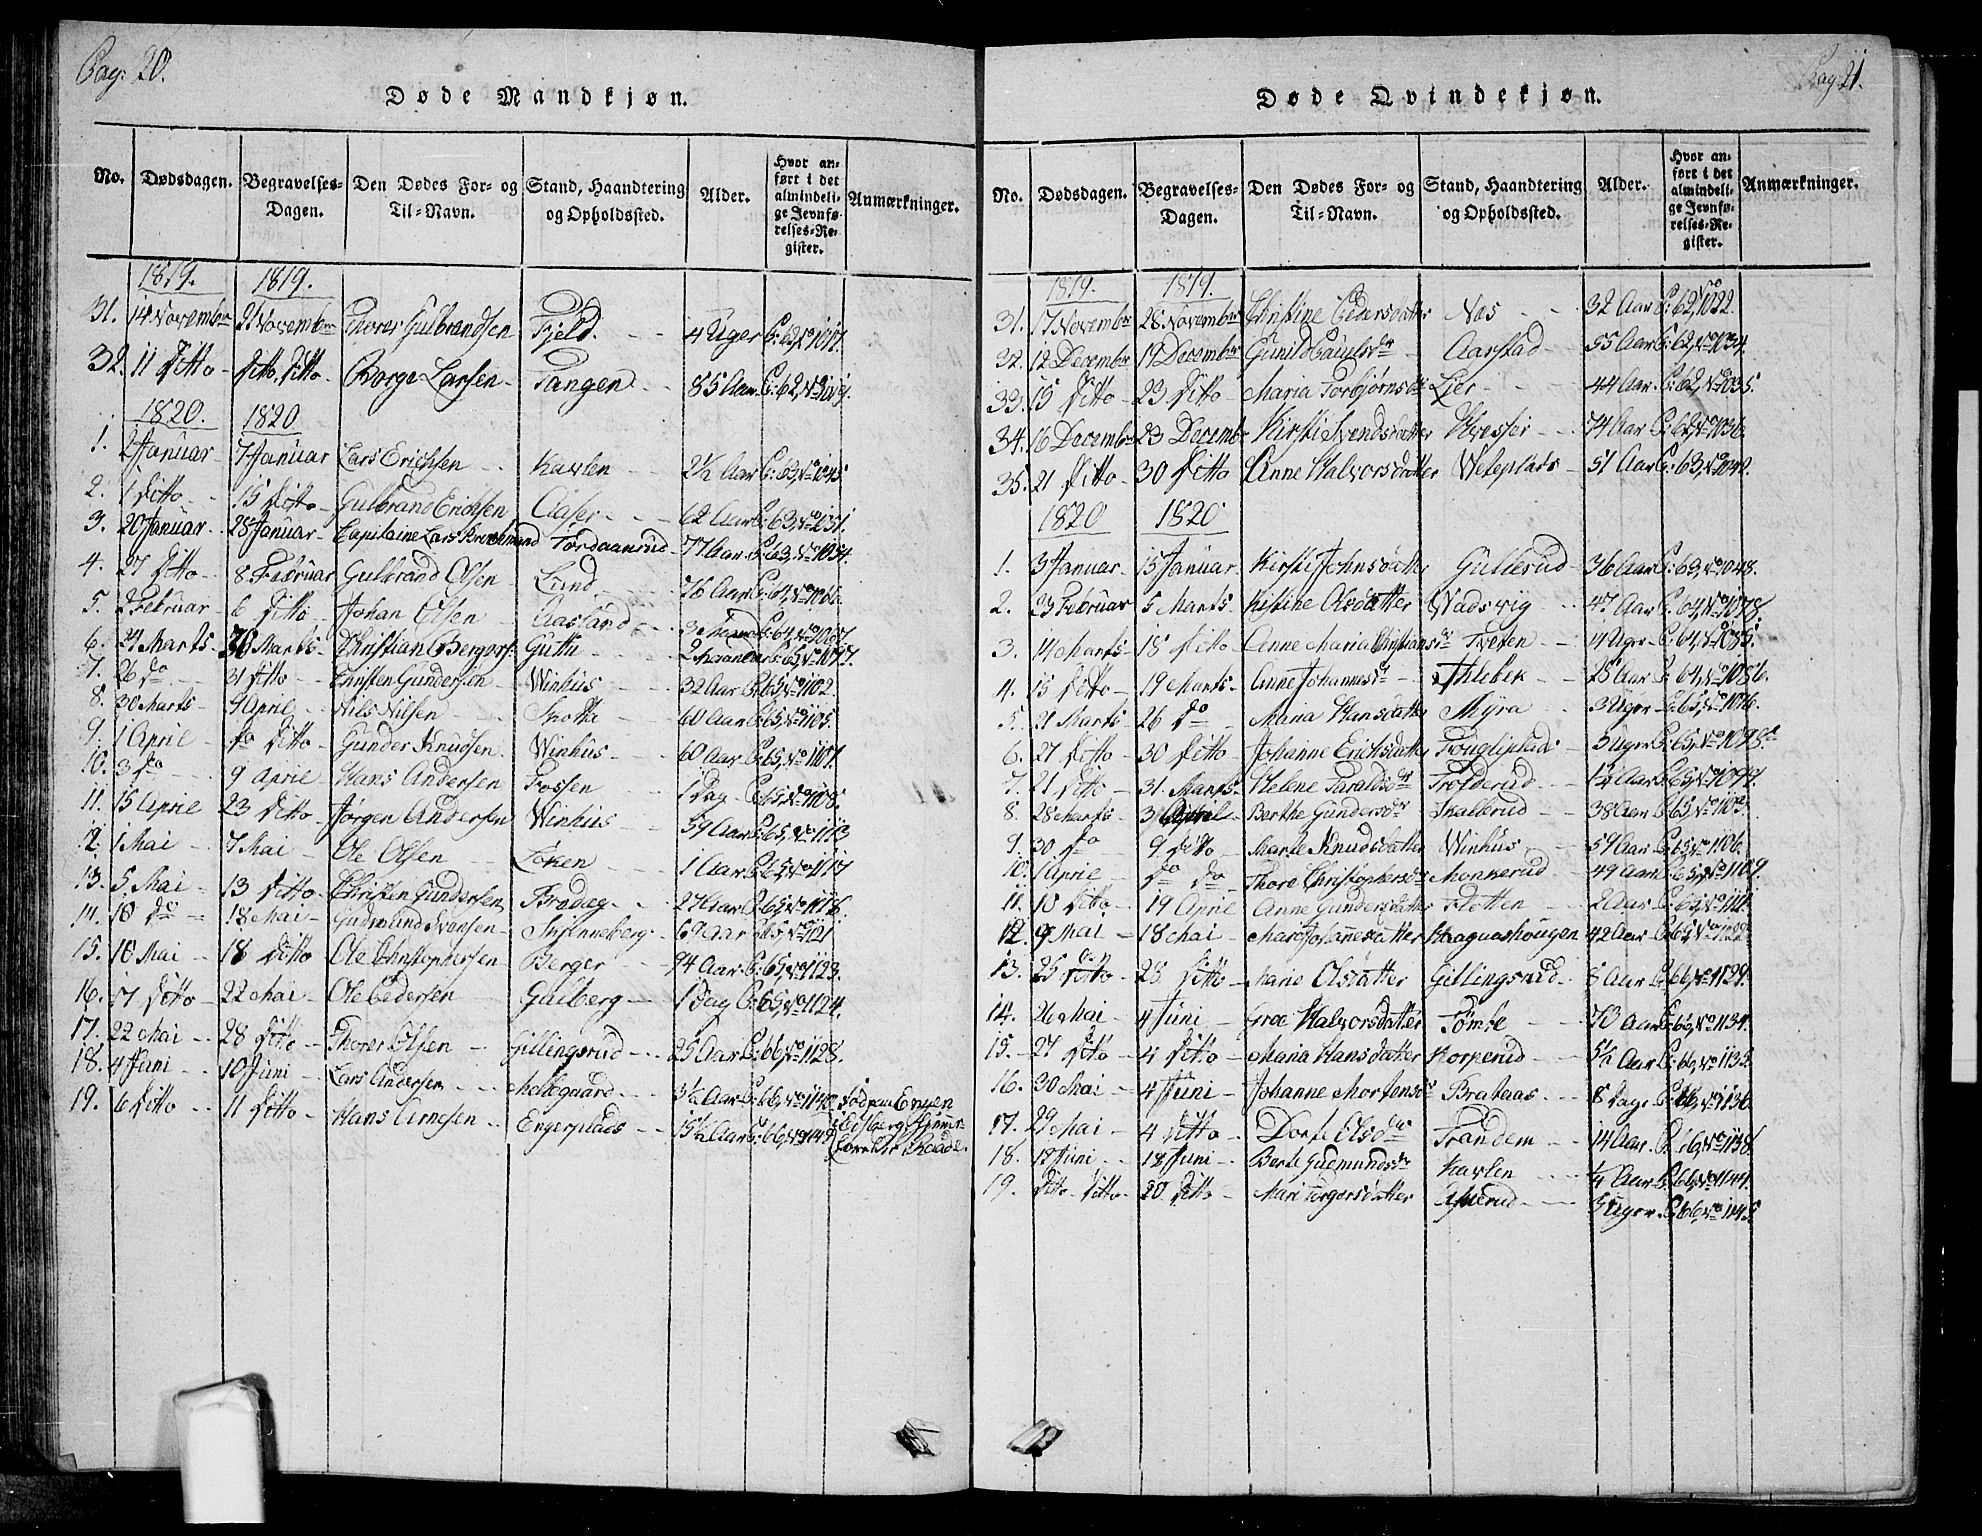 Pag: 20.
Døde Mandkjøn.
No. Dødsdagen. Begravelses-Dagen. Den Dødes For- og Til-Navn. Stand, Haandtering og Opholdssted. Alder. Hvor anført i det almindelige Jevnførelses-Register. Anmærkninger.
1819. 1819.
31. 14 Novembr 21 Novembr Thorer Gulbrandsen Fjeld. 4 Uger P: 62, No 1017.
32. 11 Ditto Ditto Ditto Borge Larsen Tangen 85 Aar P: 62, No 1019.
1820. 1820
1. 2 Januar 7 Januar Lars Erichsen Kavlen 2½ Aar P: 63, No 1045.
2. 1 Ditto 15 Ditto Gulbrand Erichsen Aaser 62 Aar P: 63, No 1051.
3. 20 Januar 28 Januar Capitaine Lars 77 Aar P: 63, No 1054.
4. 27 Ditto 8 Februar Gulbrand Olsen Lund 76 Aar P: 64, No 1066.
5. 2 Februar 6 Ditto Johan Olsen Aasland 3 P: 64, No 1067.
6. 24 Marts Marts Christian Guthu 2 Maaneder P: 65, No 1097.
7. 26 do 31 Ditto Christen Gundersen Winhus 32 Aar P: 65, No 1102.
8. 30 Marts 9 April Nils Nilsen Snotta 60 Aar P: 65, No 1105.
9. 1 April do Ditto Gunder Knudsen Winhus 60 Aar P: 65, No 1107.
10. 3 do 9 April Hans Andersen Fossen 1 Dag P: 65, No 1108.
11. 15 April 23 Ditto Jørgen Andersen Winhus 59 Aar P: 65, No 1113
12. 1 Mai 7 Mai Ole Olsen Loken 1 Aar P: 65, No 1117
13. 5 Mai 13 Ditto Christen Gundersen 27 Aar P: 65, No 1118.
14. 10 do 18 Mai Gudmund Svensen 69 Aar P: 65, No 1121
15. 16 Mai 18 Ditto Ole Christophersen Berger 94 Aar P: 65, No 1123.
16. 17 Ditto 22 Mai Ole Pedersen Gulberg 1 Dag P: 65, No 1124.
17. 22 Mai 28 Ditto Thorer Olsen Gillingsrud 25 Aar P: 66, No 1128.
18. 4 Juni 10 Juni Lars Andersen Mellegaard 3½ Aar P: 66, No 1140.
19. 6 Ditto 11 Ditto Hans Arnesen Engerplads 15½ Aar P: 66, No 1143
Pag 21.
Døde Qvindekjøn.
No. Dødsdagen. Begravelses-Dagen. Den Dødes For- og Til-Navn. Stand, Haandtering og Opholdssted. Alder. Hvor anført i det almindelige Jevnførelses-Register. Anmærkninger.
1819. 1819.
31. 17 Novembr 28 Novembr Christine Pedersdatter Næs 32 Aar P: 62, No 1022.
32. 12 Decembr 19 Decembr Gunild Paulsdr Aarstad 55 Aar P: 62, No 1034.
33. 15 Ditto 23 Ditto Maria Torbjørnsdr Lier 44 Aar P: 62, No 1035.
34. 16 Decembr 23 Decembr Kirsti Svendsdatter 74 Aar P: 62, No 1036.
35. 21 Ditto 30 Ditto Anne Halvorsdatter 51 Aar P: 63, No 1040.
1820 1820
1. 3 Januar 15 Januar Kirsti Johnsdatter Gullerud 36 Aar P: 63, No 1048.
2. 23 Februar 5 Marts Kistine Olsdatter Wadswig 47 Aar P: 64, No 1078.
3. 14 Marts 18 Ditto Anne Maria Christiansdr Tveten 4 Uger P: 64, No 1085.
4. 15 Ditto 19 Marts Anne Johannesdr 28 Aar P: 64, No 1086.
5. 21 Marts 26 do Maria Hansdatter Myra 3 Uger P: 65, No 1096.
6. 27 Ditto 30 Ditto Johanne Erichsdatter 3 Uger P: 65, No 1098.
7. 21 Ditto 31 Marts Helene Taraldsdr Trolderud 1½ Aar P: 65, No 1099.
8. 28 Marts 3 April Berthe Gundersdr Skallerud 38 Aar P: 65, No 1103.
9. 30 do 9 Ditto Marte Knudsdatter Winhus 59 Aar P: 65, No 1106.
10. 1 April do do Thore Christophersdr Monnerud 49 Aar P: 65, No 1109.
11. 10 Ditto 19 April Anne Gundersdatter Flotten 2 Aar P: 65, No 1111.
12. 9 Mai 18 Mai Maro Johannesdatter Haagaashougen 42 Aar P: 65, No 1122
13. 25 Ditto 28 Ditto Marie Olsdatter Gillingsrud 5 Aar P: 66, No 1129.
14. 26 Mai 4 Juni Groe Halvorsdatter Tømte 70 Aar P: 66, No 1134.
15. 27 Ditto 4 Ditto Maria Hansdatter Korperud 5½ Aar P: 66, No 1135.
16. 30 Mai 4 Juni Johanne Mortensdr Brataas 8 Dage P: 66, No 1136.
17. 29 Mai 4 Ditto Dorte Olsdr Trandem 14 Aar P: 66, No 1138.
18. 12 Juni 18 Juni Berte Gudmundsdr Kavlen ¼ Aar P: 66, No 1144.
19. Ditto Ditto 20 Ditto Mari Torgersdatter 3 Uger P: 66, No 1145.